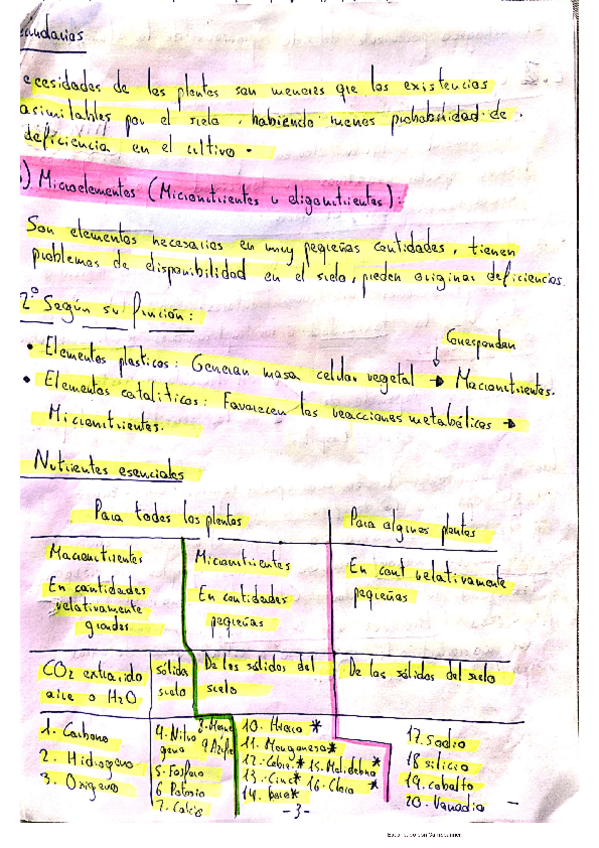 ecundarios
ecesidades de las plantas son menores que las existencias
asimilables por el suelo, habiendo menos probabilidad de
deficiencia en el cultivo.
) Microelementos (Micronutrientes u oligonutrientes):
Son elementos necesarios en muy pequeñas cantidades, tienen
problemas de disponibilidad en el suelo, pueden originar deficiencias.
2º Según su función:
Correspondan
• Elementos plasticos: Generan masa celular vegetal → Macronutrientes.
• Elementos cataliticos: Favorecen las reacciones metabólicas →
Micronutrientes.
Nutrientes esenciales
Para todas las plantas
Para algunas plantas
Macronutrientes
En cantidades
relativamente
grandes
Micronutrientes
En cantidades
pequeñas
En cant relativamente
pequeñas
CO2 extraido
aire o H2O
sólidos
suelo
De los sólidos del
suelo
De los sólidos del suelo
1. Carbono
2. Hidrogeno
3. Oxigeno
4. Nitro
geno
5. Fosforo
6 Potasio
7. Calcio
9 Azufre
10. Hierro *
11. Manganeso *
12. Cobre * 15. Molibdeno *
13. Cinc * 16. Cloro *
14. boro *
17. Sodio
18 silicio
19. cobalto
20. Vanadio
-3-